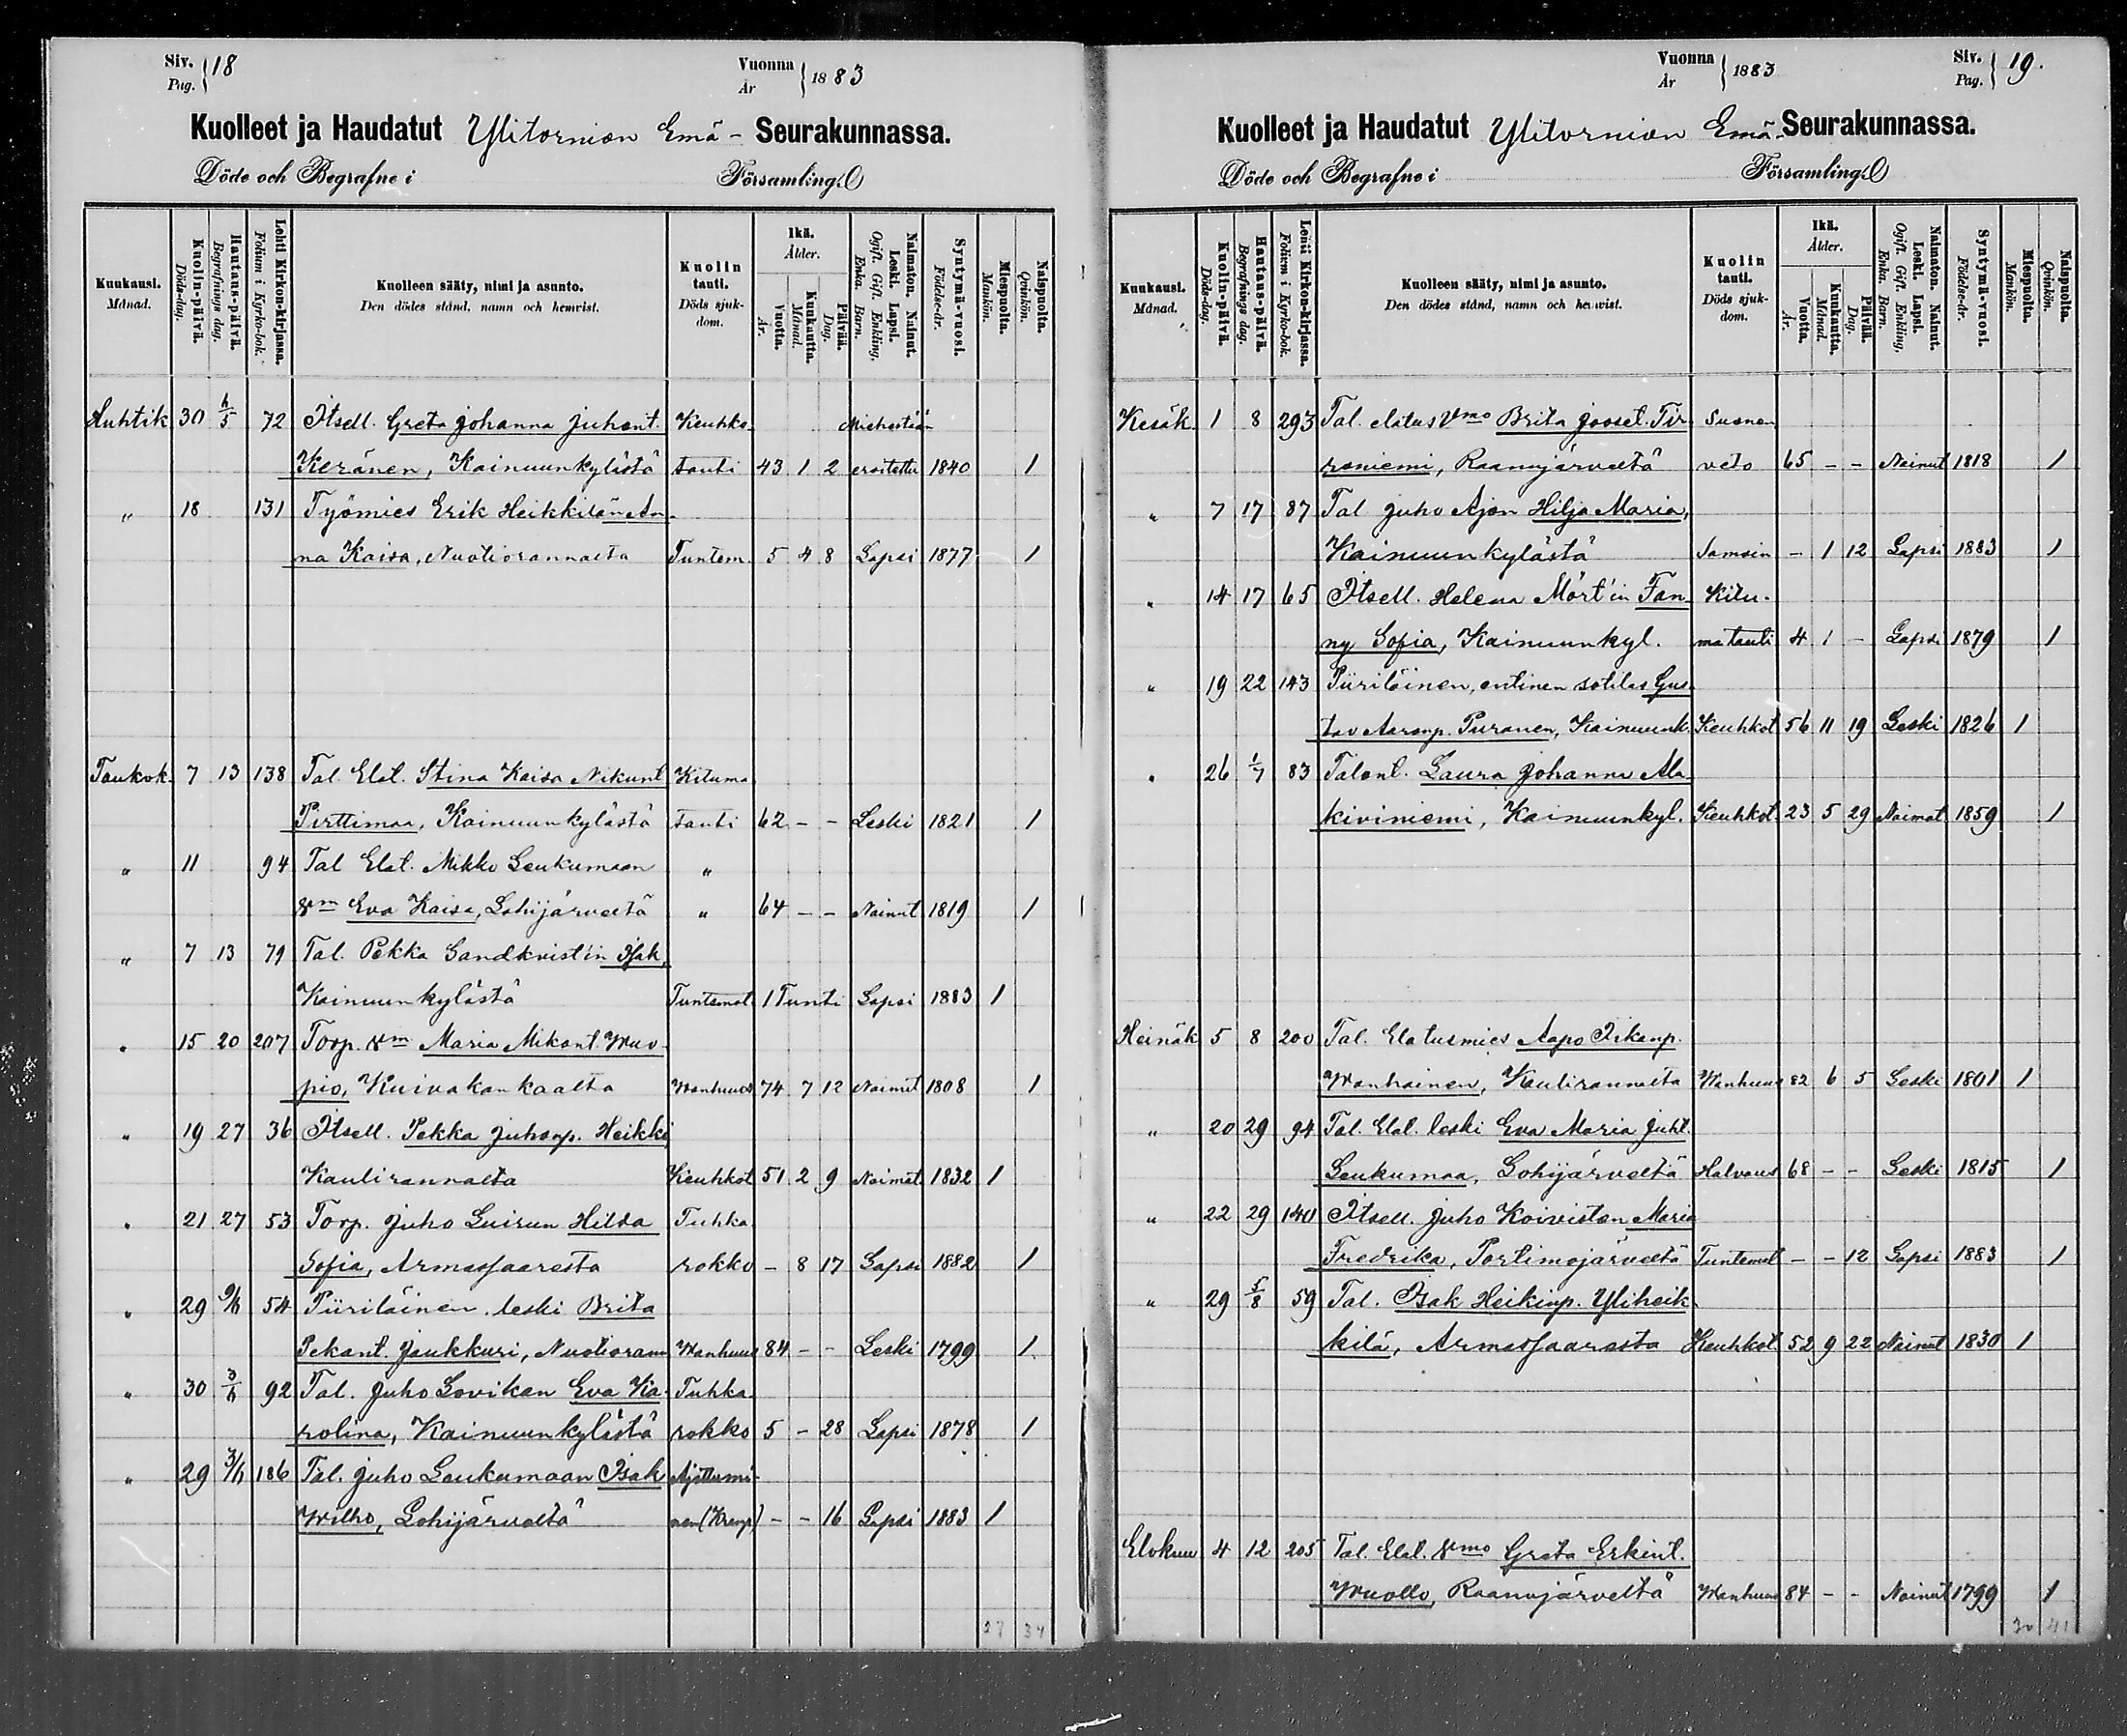 Siv. Pag. 18
Vuonna År 1883
Kuolleet ja Haudatut Ylitornion Emä- Seurakunnassa.
Döde och Begrafne i Församling.
Kuukausi. Månad.
Kuolin-päivä. Döds-dag.
Hautaus-päivä. Begrafnings dag.
Lehti Kirkon-kirjassa. Folium i Kyrko-bok.
Kuolleen sääty, nimi ja asunto. Den dödes stånd, namn och hemvist.
Kuolin tauti. Döds sjuk-dom.
Ikä. Ålder.
Vuotta. År.
Kuukautta. Månad.
Päivää. Dag.
Naimaton. Nainut. Leski. Lapsi. Ogift. Gift. Enkling. Enka. Barn.
Syntymä-vuosi. Födelse-år.
Miespuolta. Mankön.
Naispuolta. Qvinkön.
Huhtik 30 4/5 72 Itsell. Greta Johanna Juhont. Keuhko- Miehestään
Keränen, Kainuunkylästä tauti 43 1 2 eroitettu 1840 1
" 18 131 Työmies Erik Heikkilän An-
na Kaisa, Nuotiorannalta Tuntem. 5 4 8 Lapsi 1877 1
Toukok. 7 13 138 Tal. Elät. Stina Kaisa Nikunt Kituma
Pirttimaa, Kainuunkylästä tauti 62 - - Leski 1821 1
" 11 94 Tal Elät. Mikko Leukumaan "
Vm Eva Kaisa, Lohijärveltä " 64 - - Nainut 1819 1
" 7 13 79 Tal. Pekka Sandkvist'in Isak,
Kainuunkylästä Tuntemat. 1 Tunti Lapsi 1883 1
" 15 20 207 Torp. Vm Maria Mikont. Wuo-
pio, Kuivakankaalta Wanhuus 74 7 12 Nainut 1808 1
" 19 27 36 Itsell. Pekka Juhonp. Heikki,
Kaulirannalta Keuhkot 51 2 9 Naimat. 1832 1
" 21 27 53 Torp. Juho Luirun Hilda Tuhka
Sofia, Armassaaresta rokko - 8 17 Lapsi 1882 1
" 29 9/6 54 Piiriläinen leski Brita
Pekant. Jaukkuri, Nuotiorann Wanhuus 84 - - Leski 1799 1
" 30 3/6 92 Tal. Juho Lovikan Eva Ka- Tuhka
rolina, Kainuunkylästä rokko 5 - 28 Lapsi 1878 1
" 29 3/6 186 Tal. Juho Leukumaan Isak Ajettumi-
Wilho, Lohijärveltä nen (Kramp) - - 16 Lapsi 1883 1
27 34
Vuonna År 1883
Siv. Pag. 19.
Kuolleet ja Haudatut Ylitornion Emä- Seurakunnassa.
Döde och Begrafne i Församling.
Kuukausi. Månad.
Kuolin-päivä. Döds-dag.
Hautaus-päivä. Begrafnings dag.
Lehti Kirkon-kirjassa. Folium i Kyrko-bok.
Kuolleen sääty, nimi ja asunto. Den dödes stånd, namn och hemvist.
Kuolin tauti. Döds sjuk-dom.
Ikä. Ålder.
Vuotta. År.
Kuukautta. Månad.
Päivää. Dag.
Naimaton. Nainut. Leski. Lapsi. Ogift. Gift. Enkling. Enka. Barn.
Syntymä-vuosi. Födelse-år.
Miespuolta. Mankön.
Naispuolta. Qvinkön.
Kesäk. 1 8 293 Tal. elatus Vmo Brita Jooset. Tir- Suonen
roniemi, Raanujärveltä veto 65 - - Nainut 1818 1
" 7 17 87 Tal Juho Ajon Hilja Maria,
Kainuunkylästä Samoin - 1 12 Lapsi 1883 1
" 14 17 65 Itsell. Helena Mört'in Fan- Kitu-
ny Sofia, Kainuunkyl. matauti 4 1 - Lapsi 1879 1
" 19 22 143 Piiriläinen, entinen sotilas Gus-
tav Aaronp. Puranen, Kainuunk. Keuhkot 56 11 19 Leski 1826 1
" 26 1/7 83 Talont. Laura Johanna Ala-
kiviniemi, Kainuunkyl. Keuhkot 23 5 29 Naimat 1859 1
Heinäk 5 8 200 Tal. Elatusmies Aapo Iikanp.
Wanhainen, Kaulirannalta Wanhuus 82 6 5 Leski 1801 1
" 20 29 94 Tal. Elät. leski Eva Maria Juht.
Leukumaa, Lohijärveltä Halvaus 68 - - Leski 1815 1
" 22 29 140 Itsell. Juho Koiviston Maria
Fredrika, Portimojärveltä Tuntemat - - 12 Lapsi 1883 1
" 29 5/8 59 Tal. Isak Heikinp. Yliheik-
kilä, Armassaaresta Keuhkot 52 9 22 Nainut 1830 1
Elokuu 4 12 205 Tal. Elät. Vmo Greta Erkint.
Wuollo, Raanujärveltä Wanhuus 84 - - Nainut 1799 1
30 41